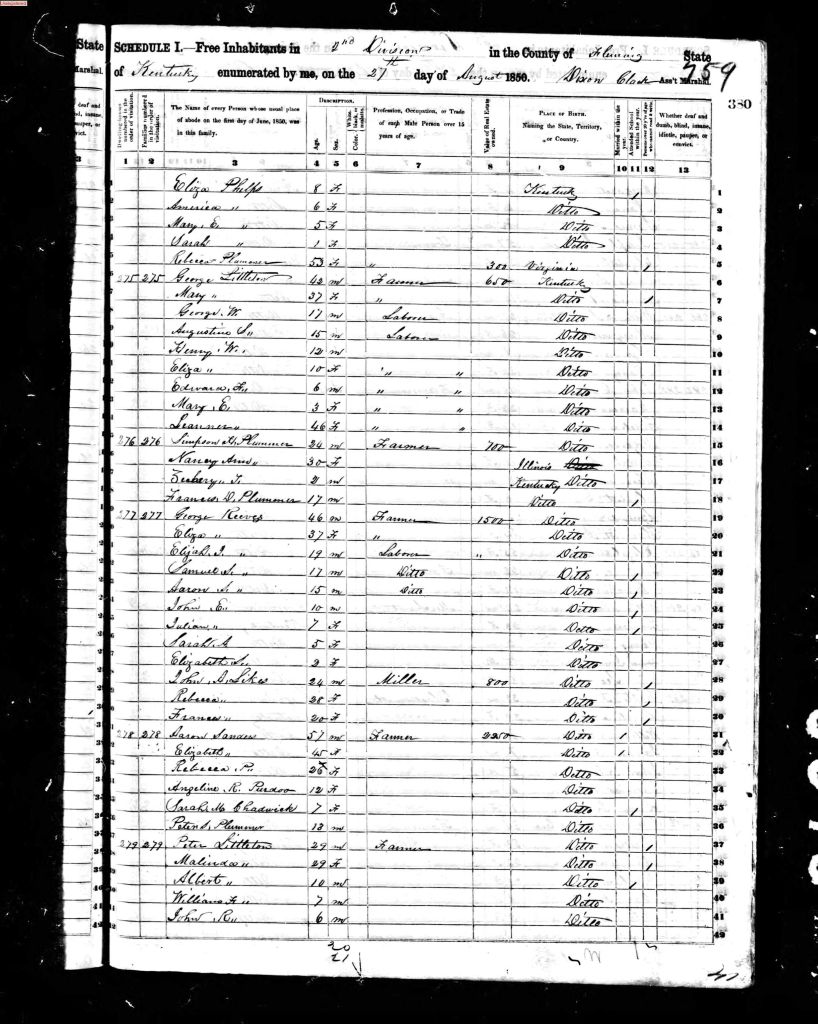 State
Marshal.
SCHEDULE I.—Free Inhabitants in 2nd Division in the County of Fleming State
of Kentucky enumerated by me, on the 27th day of August 1850. Dixon Clack Ass't Marshal.
759
380
deaf and
Dwelling-houses numbered in the order of visitation.
Families numbered in the order of visitation.
The Name of every Person whose usual place of abode on the first day of June, 1850, was in this family.
DESCRIPTION.
Age.
Sex.
Color. White, black, or mulatto.
Profession, Occupation, or Trade of each Male Person over 15 years of age.
Value of Real Estate owned.
PLACE OF BIRTH. Naming the State, Territory, or Country.
Married within the year.
Attended School within the year.
Whether deaf and dumb, blind, insane, idiotic, pauper, or convict.
1 2 3 4 5 6 7 8 9 10 11 12 13
Eliza Phelps 8 F Kentucky / 1
America " 6 F Ditto 2
Mary, E. " 5 F Ditto 3
Sarah " 1 F Ditto 4
Rebecca Plummer 53 F " 300 Virginia / 5
275 275 George Littleton 42 m Farmer 650 Kentucky 6
Mary " 37 F " Ditto / 7
George. W. 17 m Laborer Ditto 8
Augustine S," 15 m Laborer Ditto 9
Henry, W., 12 m Ditto 10
Eliza " 10 F " " Ditto 11
Edward, F," 6 m " " Ditto 12
Mary, E. 3 F " " Ditto 13
" 46 F " " Ditto 14
276 276 Simpson H. Plummer 24 m Farmer 700 Ditto 15
Nancy Ann " 30 F Illinois 16
2 m Kentucky Ditto 17
Francis D. Plummer 17 m Ditto / 18
277 277 George Reeves 46 m Farmer 1500 Ditto 19
Eliza " 37 F " Ditto 20
Elijah. I. " 19 m Laborer " Ditto 21
Samuel S. " 17 m Ditto Ditto / 22
Aaron S. " 15 m Ditto Ditto / 23
John E. 10 m Ditto / 24
Julian " 7 F Ditto / 25
Sarah A 5 F Ditto 26
Elizabeth S. 2 F Ditto 27
John, A. Sikes 24 m Miller 800 Ditto / 28
Rebecca " 28 F Ditto / 29
Frances " 20 F Ditto / 30
278 278 Aaron Sanders 57 m Farmer 2250 Ditto / 31
Elizabeth " 45 F Ditto / 32
Rebecca. P. " 26 F Ditto 33
Angeline R. Purdoo 12 F Ditto 34
Sarah M Chadwick 7 F Ditto / 35
Peter S. Plummer 13 m Ditto 36
279 279 Peter Littleton 29 m Farmer Ditto / 37
Malinda " 29 F Ditto / 38
Albert " 10 m Ditto / 39
William F " 7 m Ditto 40
John R " 6 m Ditto 41
42
20
21